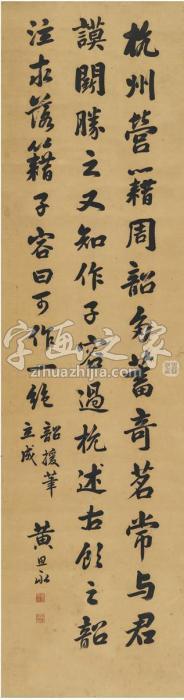 杭州营籍周韶多蓄奇茗常与君
謨闘勝之又知作子容過杭述古飲之韶
泣求落籍子容曰可作一绝
韶援筆
立成
黄思永
字画之家
zihuazhijia.com